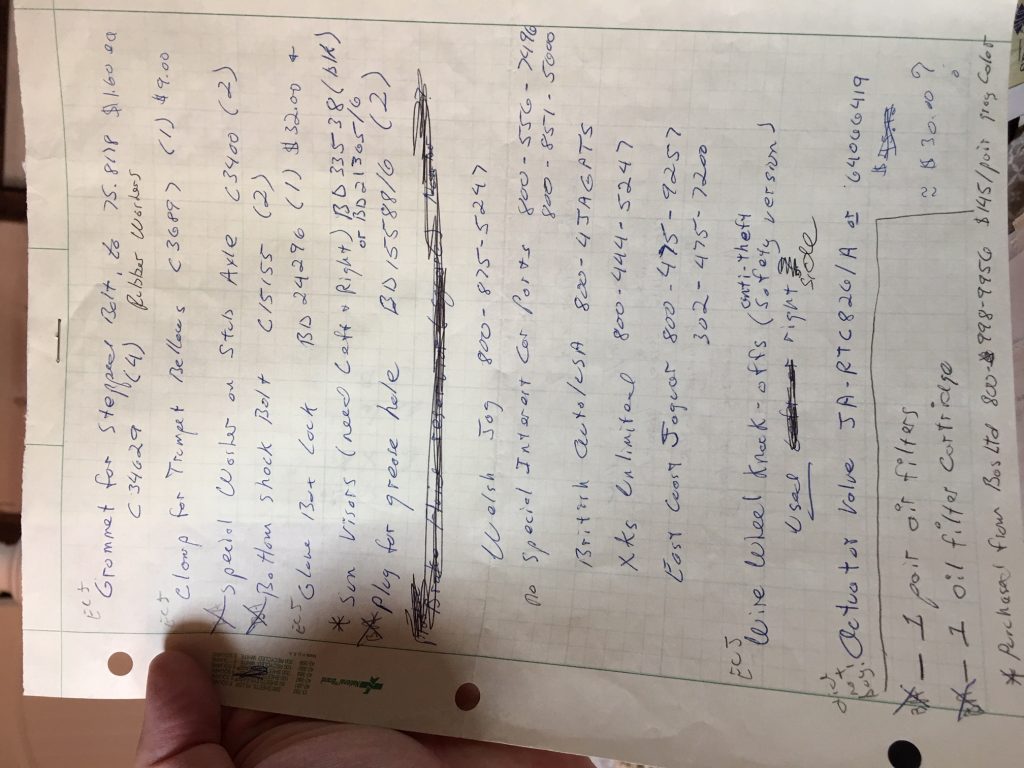 ECJ
Grommet for Stepped Bolt, to 75.8178 $1.60 ea
C34629 (4) Rubber Washers
ECJ
Clamp for Trumpet Bellows C36897 (1) $9.00
Special Washer on Stub Axle C3400 (2)
Bottom shock Bolt C15155 (2)
ECJ
Glove Box Lock BD24296 (1) $32.00
* Sun Visors (need Left & Right) BD33538 (blk)
or BD21305/6
Plug for grease hole BD15588/6 (2)
Welsh Jag 800-875-5247
no Special Interest Car Parts 800-556-7496
800-851-5000
British auto/USA 800-4 JAGPTS
Xks Unlimited 800-444-5247
East Coast Jaguar 800-475-9257
302-475-7200
ECJ
Wire Wheel Knock-offs (Safety version)
anti-theft
Used right side
Actuator Valve JA-RTC8261A or 64006419
≈ $30.00 ?
— 1 pair air filters
— 1 oil filter cartridge
* Purchased from Bas Ltd 800-998-9956 $145/pair gray color